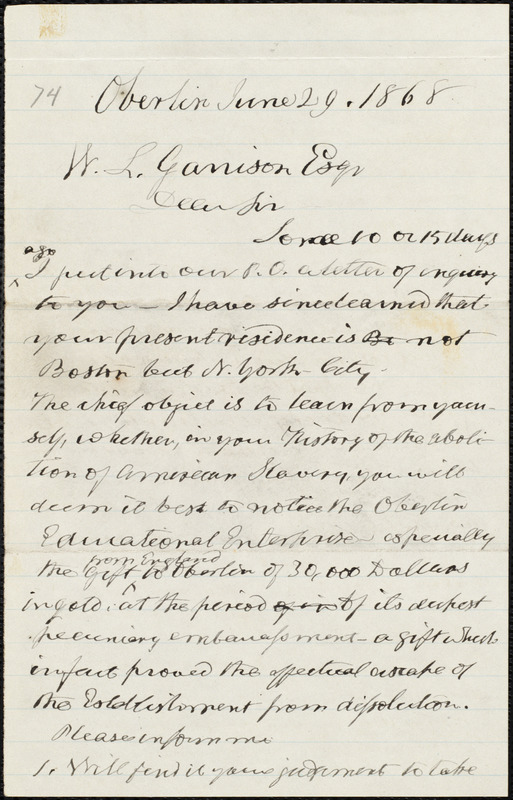 74
Oberlin June 29. 1868
W. L. Garrison Esqr
Dear Sir
Some 10 or 15 days
ago
I put into our P.O. a letter of inquiry
to you – I have since learned that
your present residence is Bo not
Boston but N. York City.
The chief object is to learn from your-
self, whether, in your History of the aboli-
tion of American Slavery, you will
deem it best to notice the Oberlin
Educational Enterprise especially
from England
the Gift to Oberlin of 30,000 Dollars
in gold: at the period of its deepest
pecuniary embarrassment – a gift which
in fact proved the effectual escape of
the Establishment from dissolution.
Please inform me
1. Will find it your judgment to take